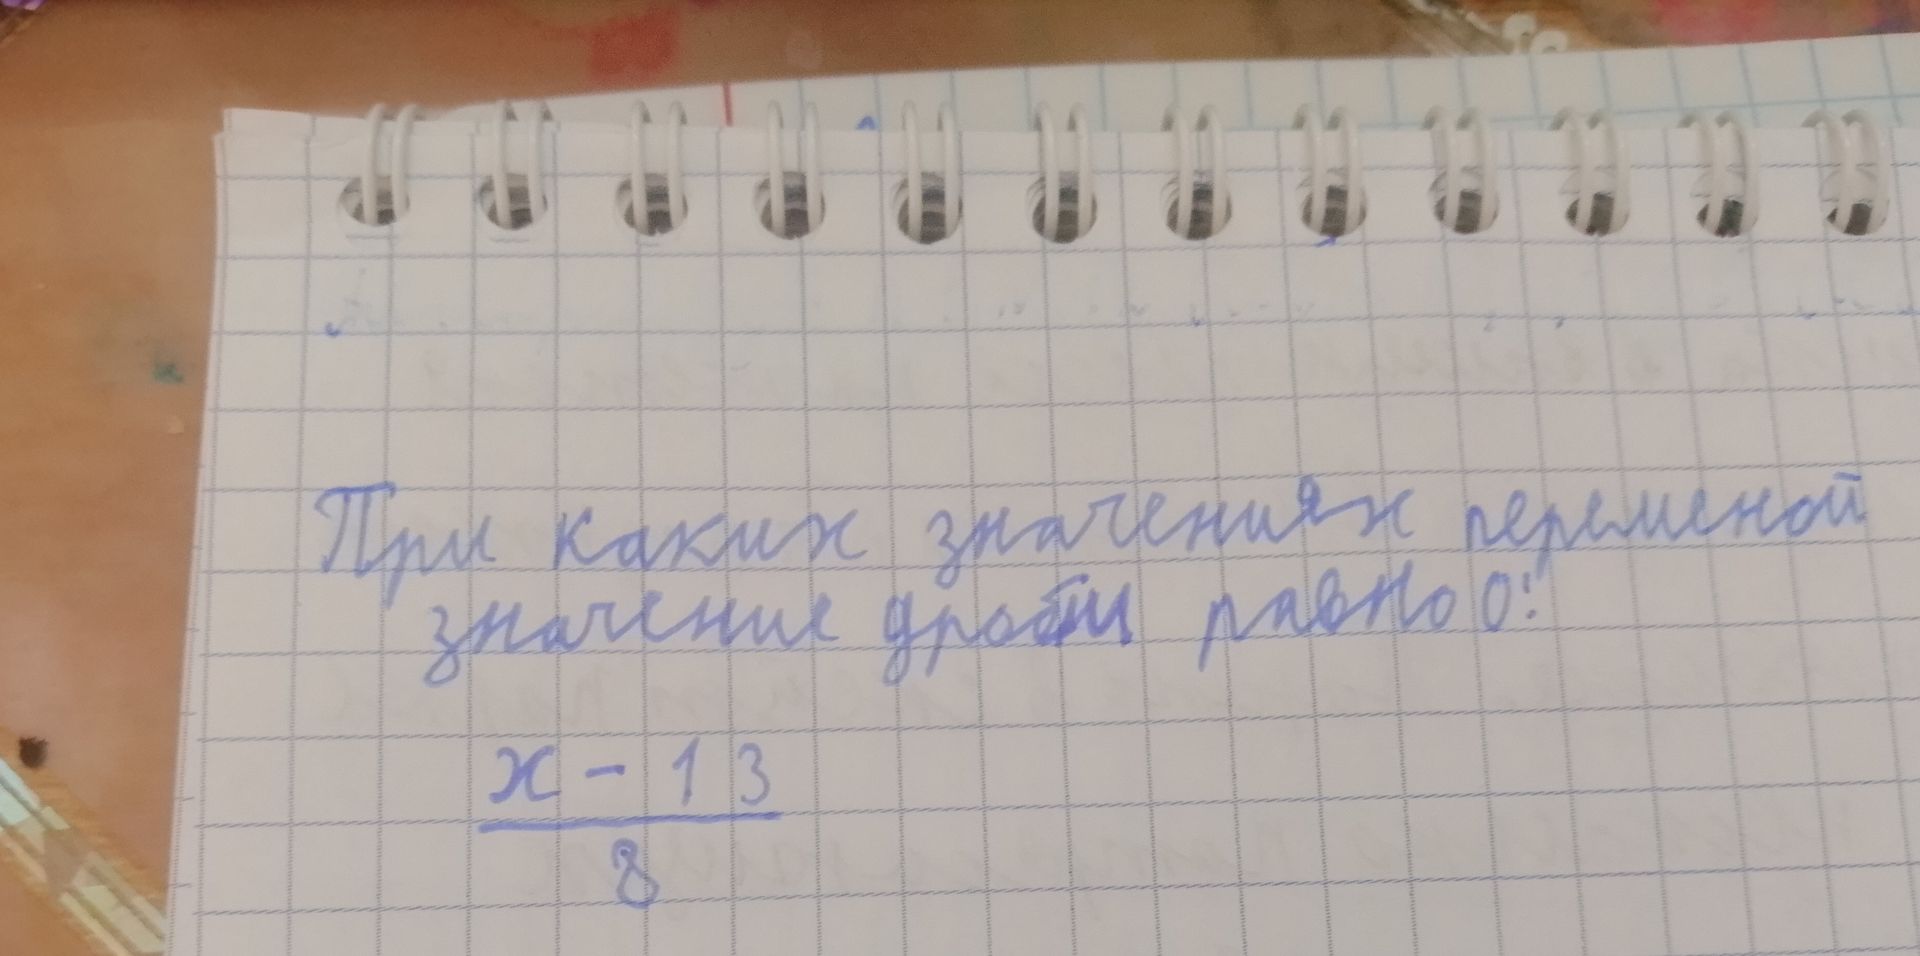 При каких значениях переменой
значение дроби равно 0:
x - 13
8